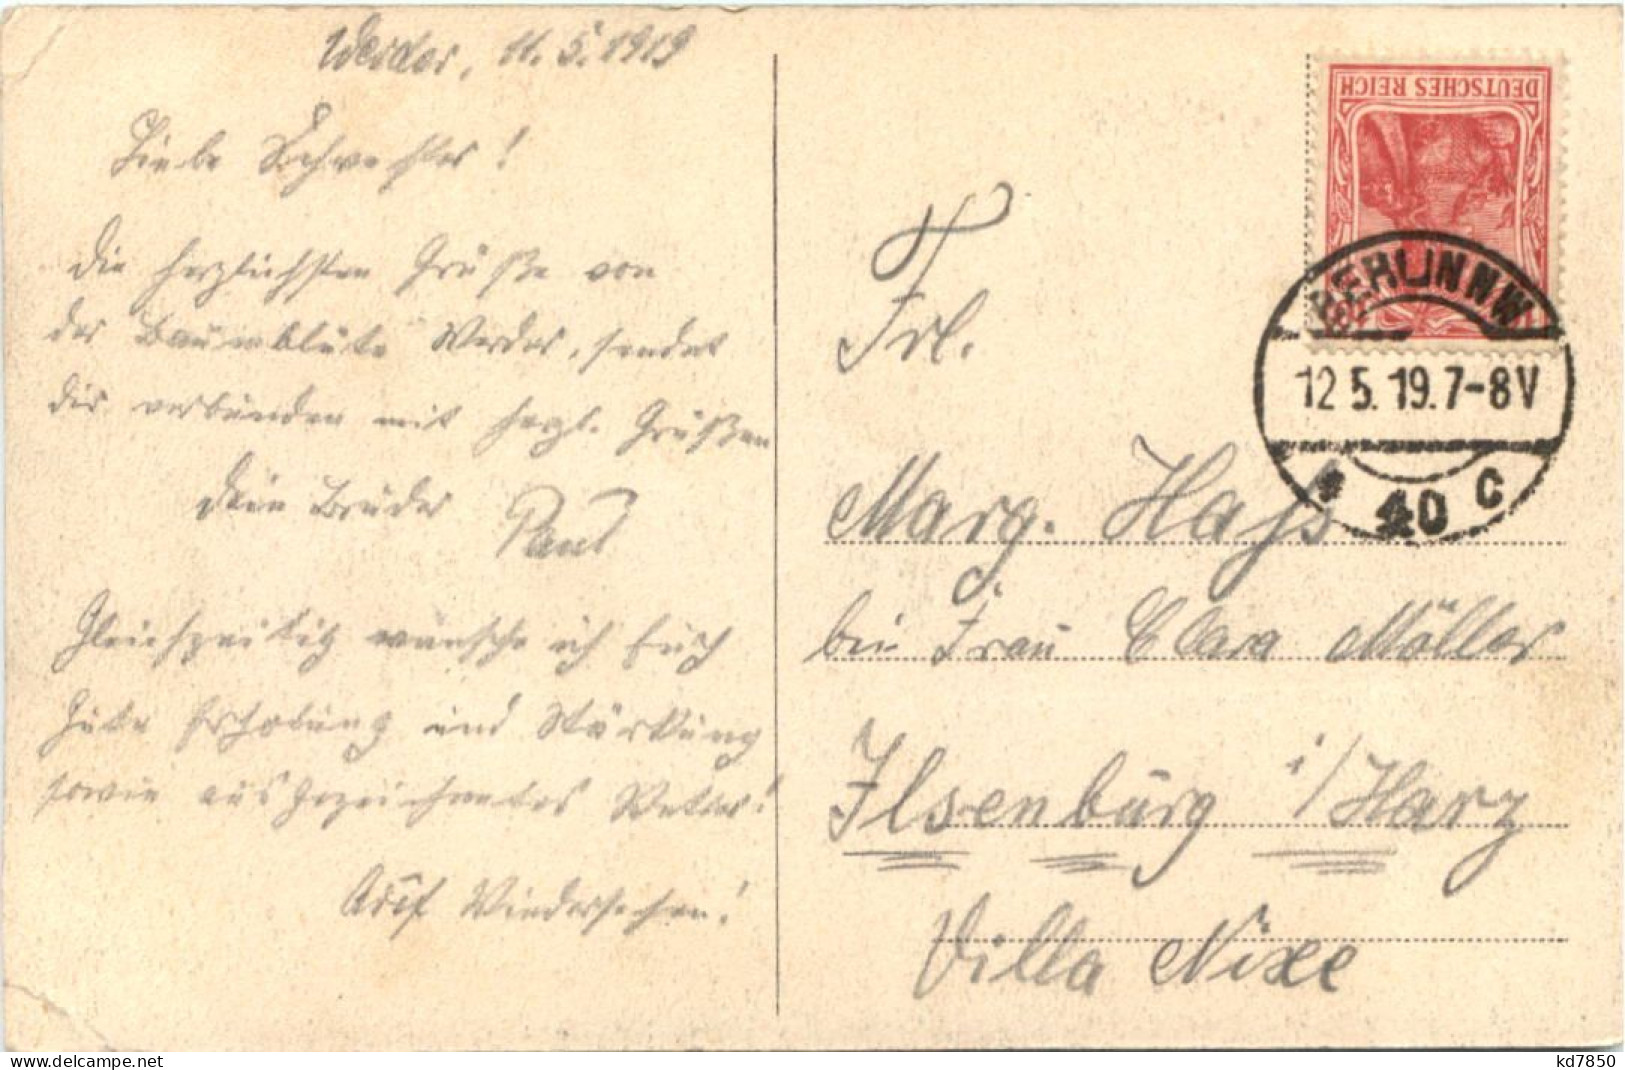 Werder, 11. 5. 1919
Liebe Schwester!
Die herzlichsten Grüße von
der Baumblüte Werder, sendet
dir verbunden mit herzl. Grüßen
dein Bruder Paul
Gleichzeitig wünsche ich Euch
gute Erholung und Stärkung
sowie ausgezeichnetes Wetter!
Auf Wiedersehen!
DEUTSCHES REICH
BERLIN NW
12 5. 19. 7-8V
* 40 c
Frl.
Marg. Hass
bei Frau Clara Möller
Ilsenburg i/Harz
Villa Nixe
www.delcampe.net
kd7850